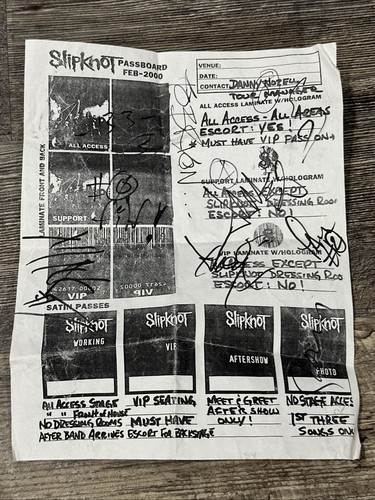 Slipknot PASSBOARD
FEB-2000
VENUE:
DATE:
CONTACT: DANNY NOZELL
TOUR MANAGER
ALL ACCESS LAMINATE W/HOLOGRAM
ALL ACCESS - ALL AREAS
ESCORT: YES!
* MUST HAVE VIP PASS ON *
LAMINATE FRONT AND BACK
ALL ACCESS
SUPPORT
VIP
VIP
SUPPORT LAMINATE W/HOLOGRAM
ALL AREAS EXCEPT
SLIPKNOT DRESSING ROO
ESCORT: NO!
VIP LAMINATE W/HOLOGRAM
ACCESS EXCEPT
SLIPKNOT DRESSING ROO
ESCORT: NO!
SATIN PASSES
Slipknot
WORKING
Slipknot
VIP
Slipknot
AFTERSHOW
Slipknot
PHOTO
ALL ACCESS STAGE
" " FRONT OF HOUSE
NO DRESSING ROOMS
AFTER BAND ARRIVES ESCORT FOR BACKSTAGE
VIP SEATING
MUST HAVE
MEET & GREET
AFTER SHOW
ONLY!
NO STAGE ACCES
1ST THREE
SONGS ON